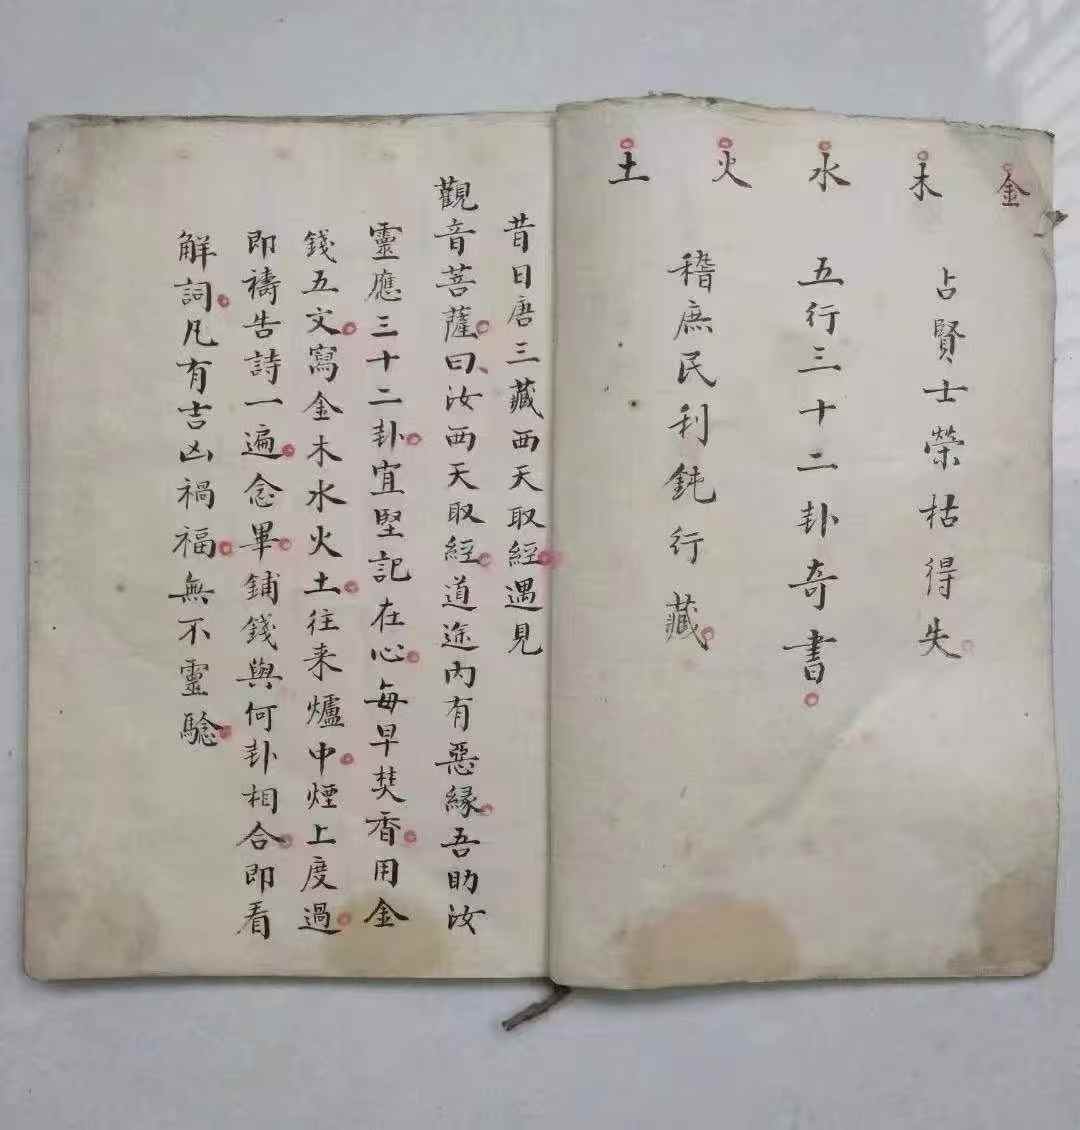 金木水火土
占賢士榮枯得失
五行三十二卦奇書
稽庶民利鈍行藏
昔日唐三藏西天取經遇見
觀音菩薩曰汝西天取經道途內有惡緣吾助汝
靈應三十二卦宜堅記在心每早焚香用金
錢五文寫金木水火土往来爐中煙上度過
即禱告詩一遍念畢鋪錢與何卦相合即看
解詞凡有吉凶禍福無不靈驗